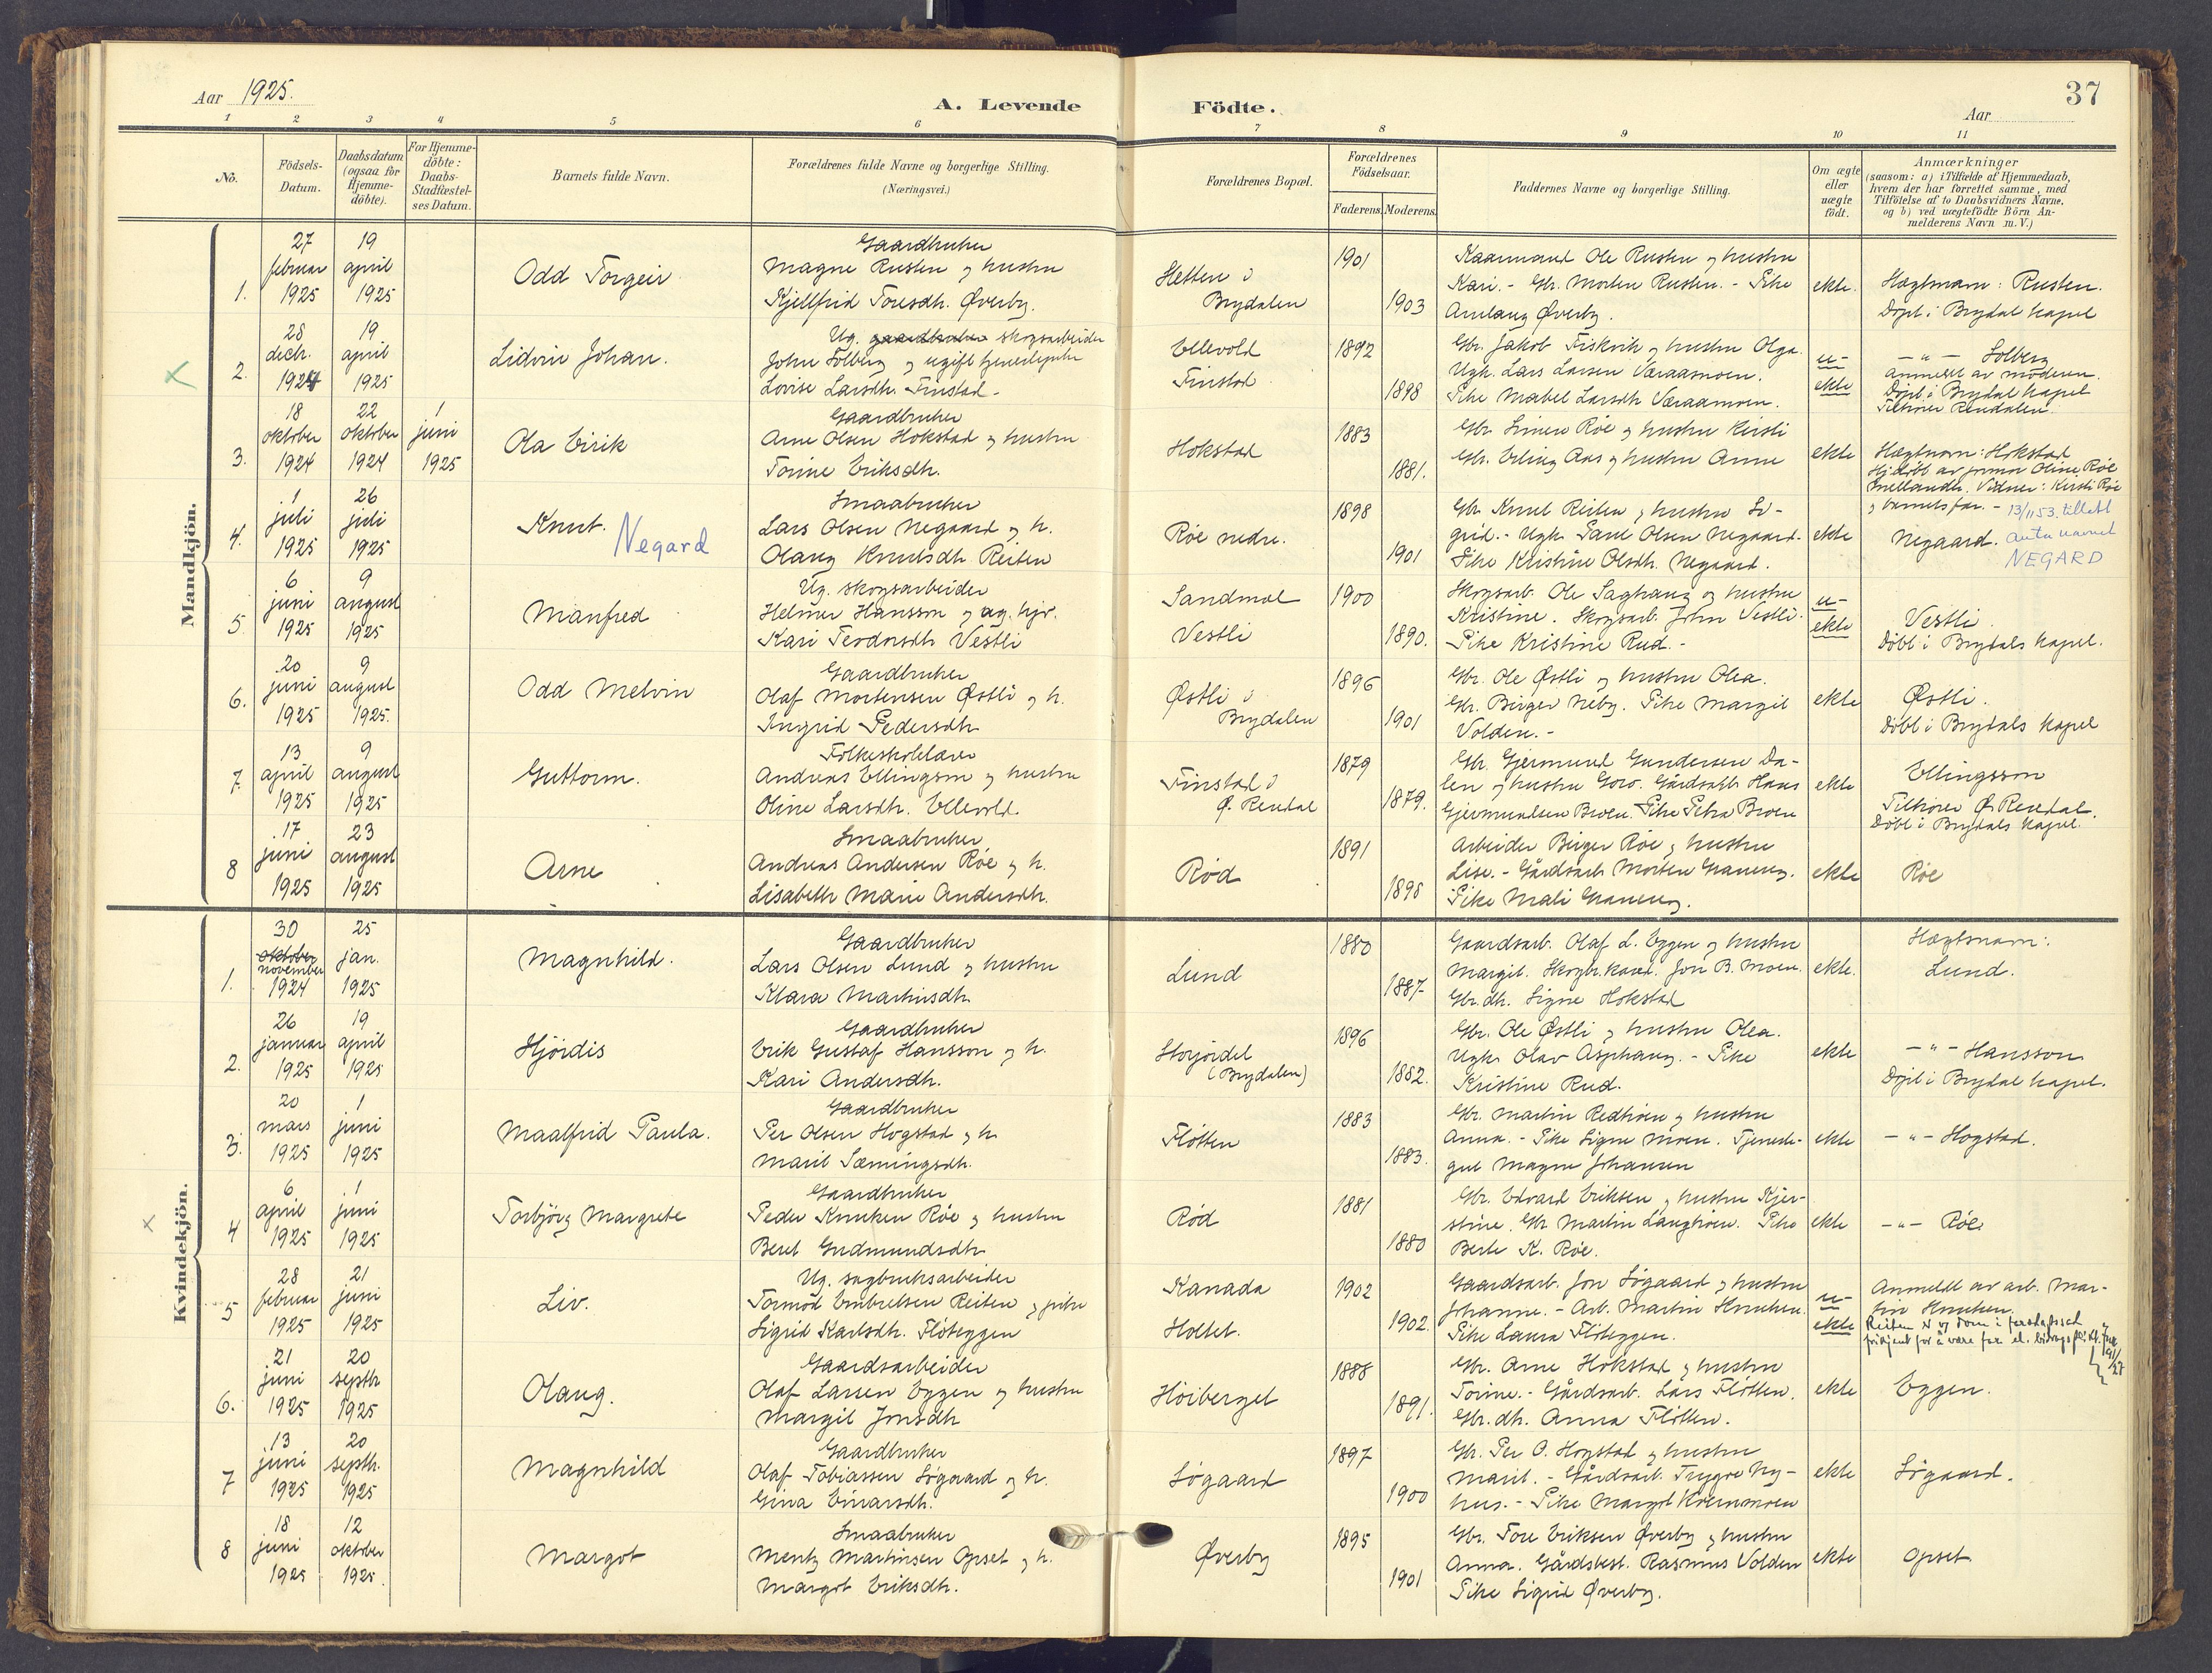 Aar 1925.
A. Levende Födte.
37
Aar
1 2 3 4 5 6 7 8 9 10 11
No.
Födsels-Datum.
Daabsdatum (ogsaa for Hjemmedöbte).
For Hjemmedöbte: Daabs-Stadfæstelses Datum.
Barnets fulde Navn.
Forældrenes fulde Navne og borgerlige Stilling. (Næringsvei.)
Forældrenes Bopæl.
Forældrenes Födselsaar.
Faderens. Moderens.
Faddernes Navne og borgerlige Stilling.
Om ægte eller uægte födt.
Anmærkninger
(saasom: a) i Tilfælde af Hjemmedaab,
hvem der har forrettet samme, med
Tilföielse af to Daabsvidners Navne,
og b) ved uægtefödte Börn Anmelderens Navn m. V.)
Mandkjön.
1. 27 februar 1925
19 april 1925
Odd Torgeir
Gaardbruker
Magne Rusten og hustru
Kjellfrid Toresdh. Øverby.
Hetten i
Brydalen
1901
1903
Kaarmand Ole Rusten og hustru
Kari. - Gbr. Morten Rusten. - Pike
Amlaug Øverby.
ekte.
Hægtnavn: Rusten.
Døpt i Brydal kapel
2. 28 decbr. 1924
19 april 1925
Lidvin Johan.
Ug. gaardbruker skogsarbeider
John Solberg og ugift tjenestepike
Lovise Larsdh. Finstad-
Ellevold
Finstad
1892
1898
Gbr. Jakob Fiskvik og hustru Olga.
Ugk. Lars Larsen Væraamoen.
Pike Mabel Larsdh Væraamoen.
u-
ekte
- " - Solberg
anmeldt av moderen.
Døpt i Brydal kapel
Tilhører Rendalen.
3. 18 oktober 1924
22 oktober 1924
1 juni 1925
Ola Eirik
Gaardbruker
Arne Olsen Hokstad og hustru
Torine Eriksdh.
Hokstad
1883
1881.
Gbr. Simen Røe og hustru Kirsti
Gbr. Erling Aas og hustru Anne
ekte
Hægtnavn: Hokstad
Hj.døbt av jormor Oline Røe
Vidner: Kirsti Røe
og barnets far. - 13/11 53. tillatt
4. 1 juli 1925
26 juli 1925
Knut. Negard
Smaabruker
Lars Olsen Negaard og h.
Olaug Knutsdh. Reiten
Røe nedre.
1898
1901
Gbr. Knut Reiten og hustru Si-
grid. - Ugk. Paul Olsen Negaard.
Pike Kristine Olsdh. Negaard.
ekte
Negaard. anta navnet
NEGARD
5. 6 juni 1925
9 august 1925
Manfred
Ug. skogsarbeider
Helmer Hansson og ug. hjv.
Kari Teodorsdh Vestli
Sandmoel
Vestli
1900
1890.
Skogsarb. Ole Saghaug og hustru
Kristine. Skogsarb. John Vestli.
Pike Kristine Rud. -
u-
ekte
Vestli.
Døbt i Brydals kapel.
6. 20 juni 1925
9 august 1925.
Odd Melvin
Gaardbruker
Olaf Mortensen Østli og h.
Ingrid Pedersdh
Østli i
Brydalen
1896
1901
Gbr. Ole Østli og hustru Olea.
Gbr. Birger Neby. Pike Margit
Volden. -
ekte
Østli.
Døbt i Brydals kapel
7. 13 april 1925
9 august 1925
Guttorm.
Folkeskolelærer
Andreas Ellingson og hustru
Oline Larsdh. Ellevold.
Finstad i
Ø. Rendal
1879
1879.
Gbr. Gjermund Gundersen Da-
len og hustru Goro. Gårdsarb. Hans
Gjermundsen Broen. Pike Petra Broen
ekte
Ellingsson
Tilhører Ø. Rendal.
Døbt i Brydals kapel.
8 17 juni 1925
23 august 1925
Arne
Smaabruker
Andreas Andersen Røe og h.
Lisabeth Marie Andersdh.
Rød
1891
1898
Arbeider Birger Røe og hustru
Lise. - Gårdsarb Morten
Pike Mali
ekte
Røe
Kvindekjön.
1. 30 oktober november 1924
25 jan. 1925
Magnhild.
Gaardbruker
Lars Olsen Lund og hustru
Klara Martinsdh
Lund
1880
1887-
Gaardsarb. Olaf L. Eggen og hustru
Margit. Skogbr.kand. Jon B. Moen.
Gbr.dh. Signe Hokstad
ekte.
Hægtnavn:
Lund.
2. 26 januar 1925
19 april 1925
Hjördis
Gaardbruker
Erik Gustaf Hansson og h.
Kari Andersdh.
Storjordet
(Brydalen)
1896
1882.
Gbr. Ole Østli og hustru Olea.
Ugk. Olav Asphaug. - Pike
Kristine Rud.
ekte
- " - Hansson
Døpt i Brydal kapel.
3. 20 mars 1925
1 juni 1925
Maalfrid Paula.
Gaardbruker
Per Olsen Hogstad og h
Marit Sæmingsdh.
Fløtten
1883
1883.
Gbr. Martin Rødhoen og hustru
Anna. - Pike Signe Moen. Tjeneste-
gut Magne Johansen
ekte
- " - Hogstad.
4 6 april 1925
1 juni 1925
Torbjörg Margrete
Gaardbruker
Peder Knutsen Røe og hustru
Beret Gudmundsdh
Rød
1881
1880
Gbr. Edvard Eriksen og hustru Kjer-
stine. Gbr Martin Langhoen. Pike
Berte K. Røe.
ekte
- " - Røe
5 28 februar 1925
21 juni 1925
Liv.
Ug. sagbruksarbeider
Tormod Embretsen Reiten og pike
Sigrid Karlsdh. Flöteggen
Kanada
Holtet.
1902
1902.
Gaardsarb. Jon Søgaard og hustru
Johanne. - Arb. Martin Knutsen.
Pike Laura Flöteggen.
u-
ekte
Anmeldt av arb. Mar-
tin Knutsen.
Reiten er ved dom i farskapssak
frikjent for å være far el. bidragspliktig
6. 21 juni 1925
20 septbr 1925
Olaug.
Gaardsarbeider
Olaf Larsen Eggen og hustru
Margit Jonsdh
Höiberget
1888
1891.
Gbr. Arne Hokstad og hustru
Torine. - Gårdsarb. Lars Fløtten.
Gbr.dh. Anna Fløtten.
ekte
Eggen.
7 13 juni 1925
20 septbr. 1925
Magnhild
Gaardbruker
Olaf Tobiassen Søgaard og h.
Gina Einarsdh.
Søgaard
1897
1900
Gbr. Per O. Hogstad og hustru
Marit. - Gårdsarb. Trygve Ny-
hus. - Pike Margot Kvernmoen
ekte
Søgaard.
8 18 juni 1925
12 oktober 1925.
Margot
Smaabruker
Mentz Martinsen Opset og h.
Margot Eriksdh.
Øverby
1895
1901
Gbr. Tore Eriksen Øverby og hustru
Anna. Gårdsbest. Rasmus Volden
Pike Sigrid Øverby.
ekte
Opset